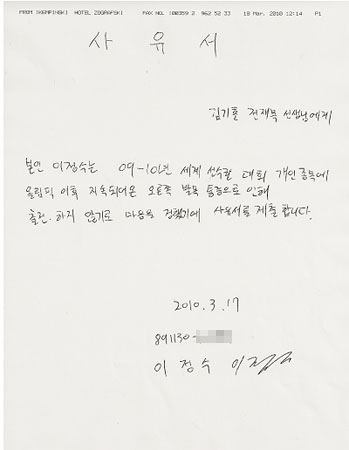 FROM :KEMPINSKI HOTEL ZOGRAFSKI FAX NO. :00359 2 962 52 33 18 Mar. 2010 12:14 P1
사 유 서
김기훈 전재목 선생님에게
본인 이정수는 09-10년 세계 선수권 대회 개인종목에
올림픽 이후 지속되어온 오른쪽 발목 통증으로 인해
출전. 하지 않기로 마음을 정했기에 사유서를 제출합니다.
2010. 3. 17
891130-
이 정 수